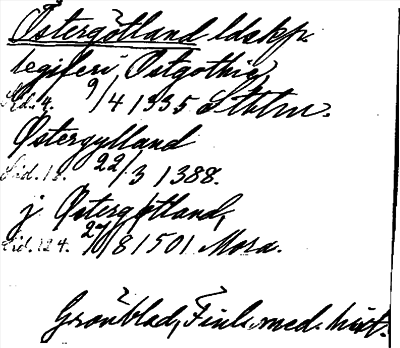 Östergötland ldskp.
legiferi, Ostgothie,
Sid. 4. 9/4 1335 Sthlm.
Østergylland
Sid. 18. 22/3 1388.
j Østergøtland,
Sid. 124. 27/8 1501 Mora.
Grönblad, Finl. med. hist.